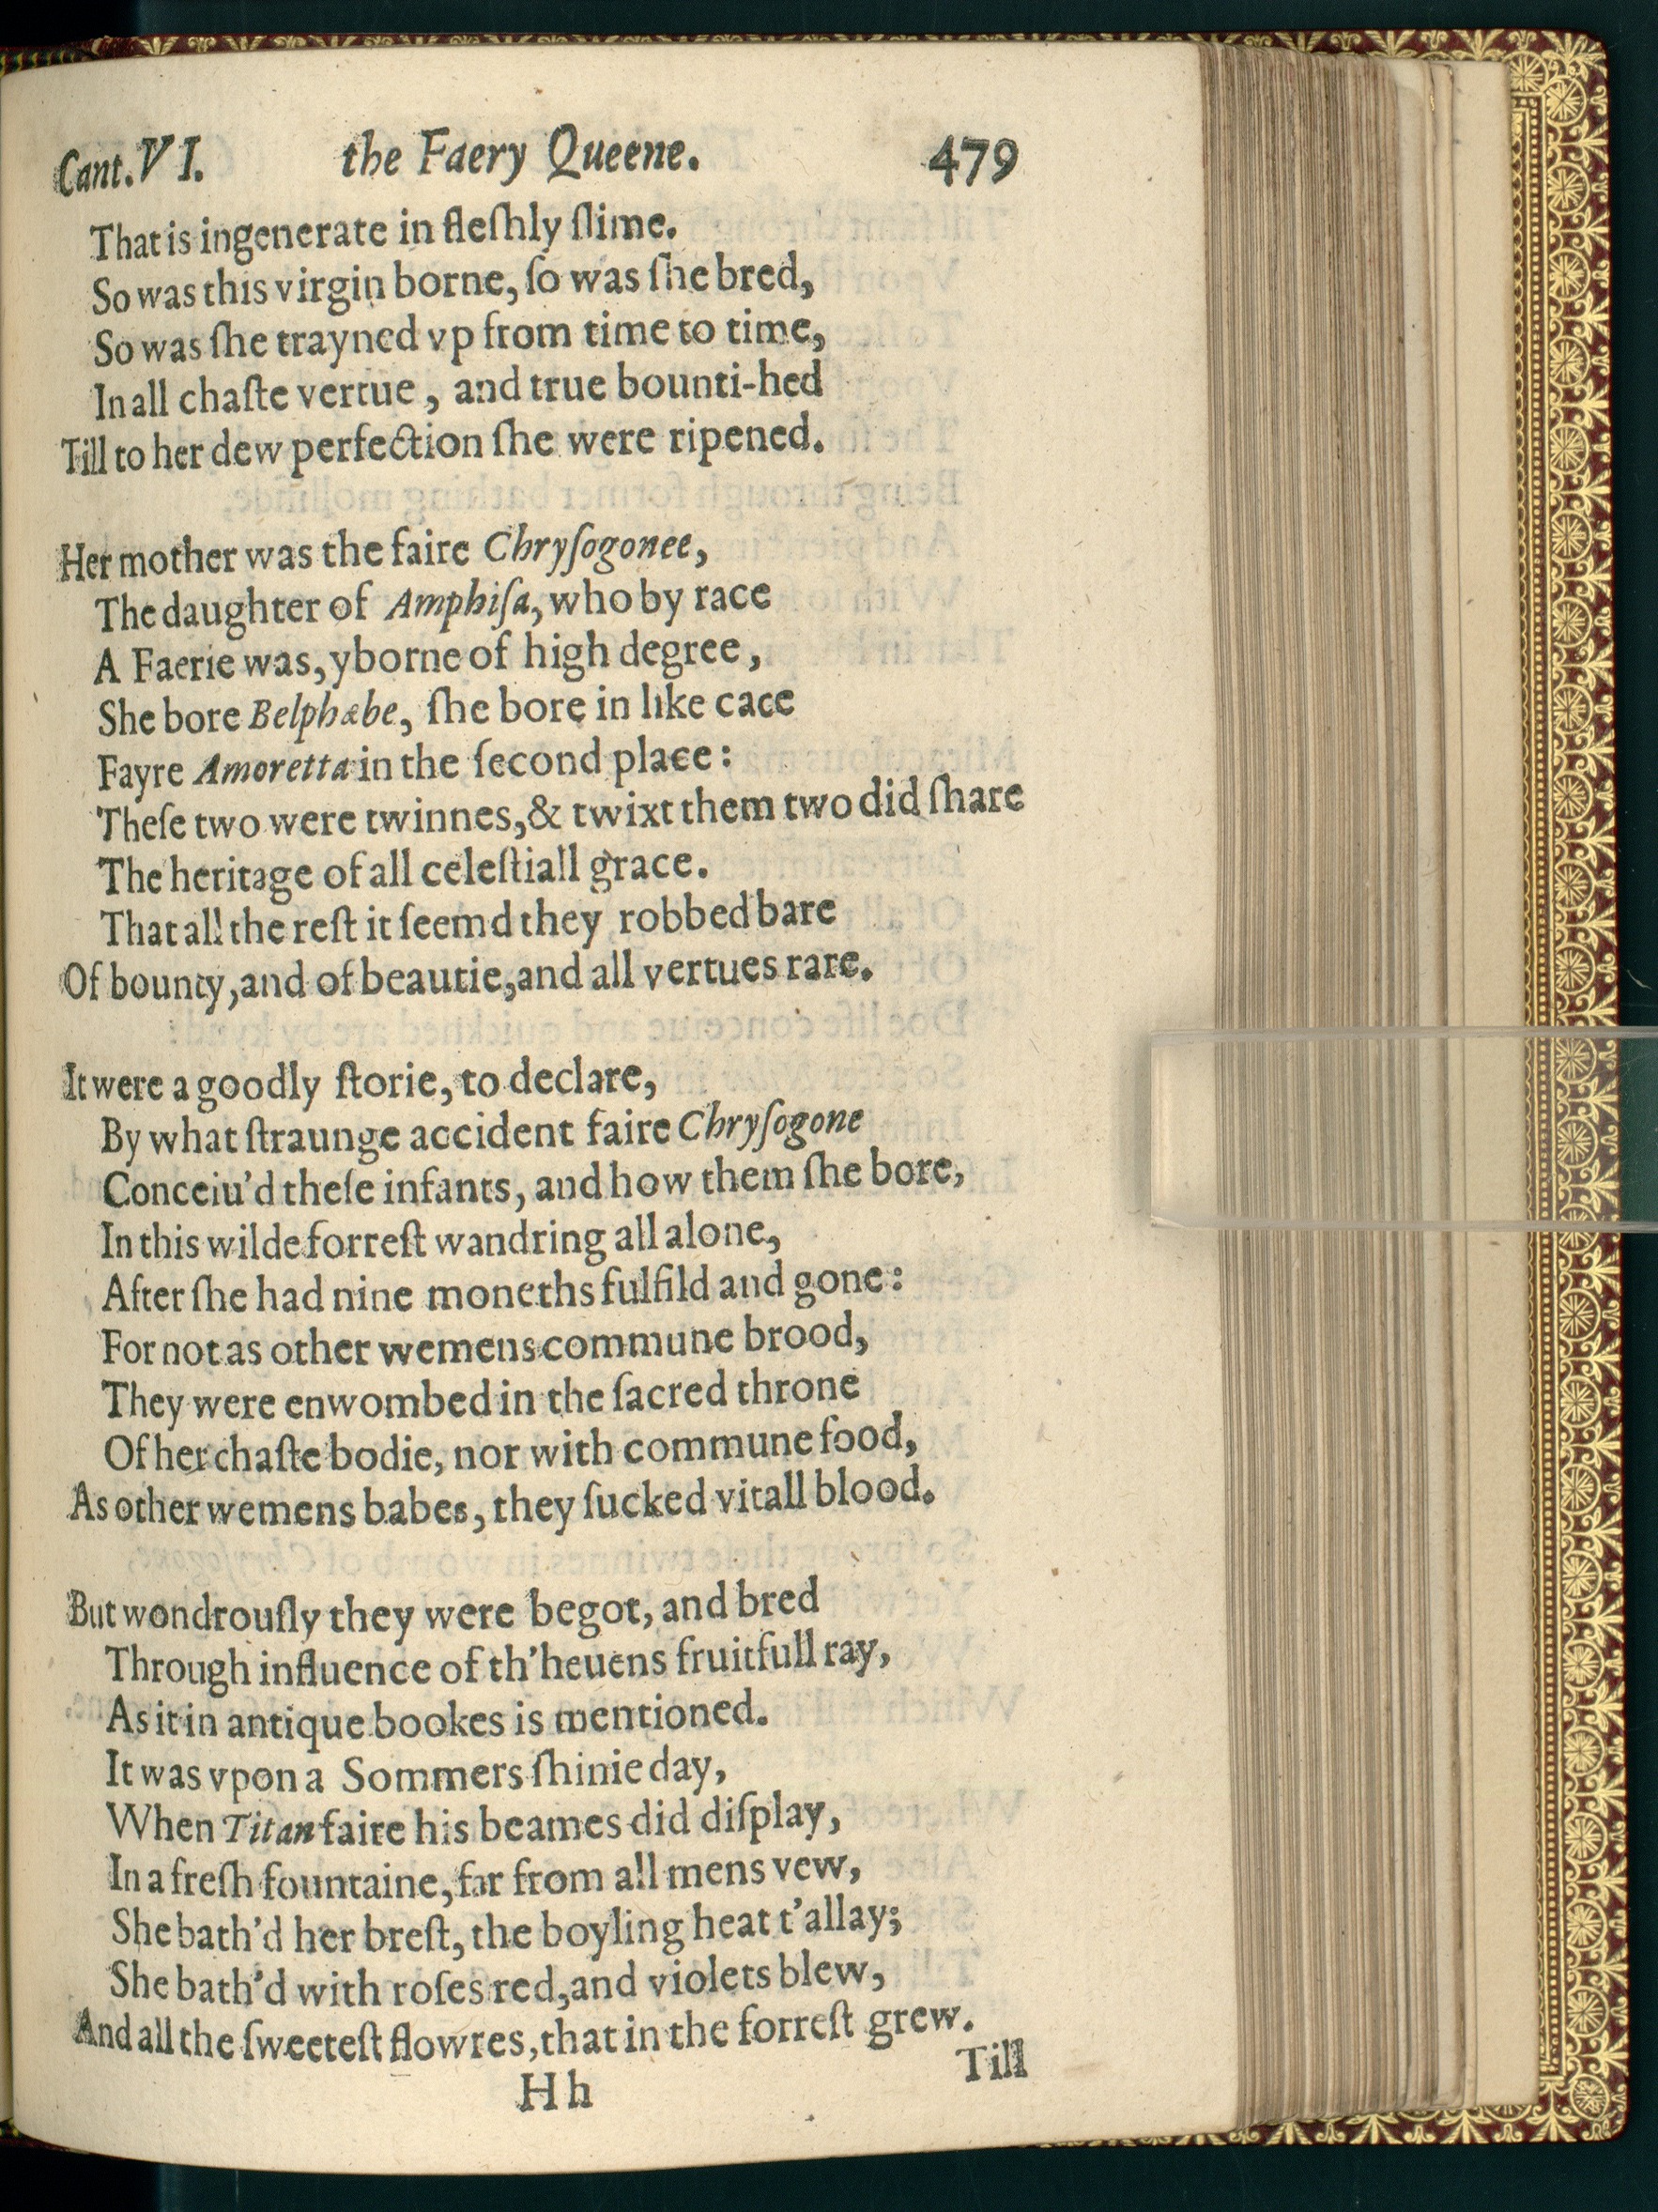 Cant. VI. the Faery Queene. 479
That is ingenerate in fleſhly ſlime.
So was this virgin borne, ſo was ſhe bred,
So was ſhe trayned vp from time to time,
In all chaſte vertue, and true bounti-hed
Till to her dew perfection ſhe were ripened.
Her mother was the faire Chryſogonee,
The daughter of Amphiſa, who by race
A Faerie was, yborne of high degree,
She bore Belphæbe, ſhe bore in like cace
Fayre Amoretta in the ſecond place:
Theſe two were twinnes, & twixt them two did ſhare
The heritage of all celeſtiall grace.
That all the reſt it ſeemd they robbed bare
Of bounty, and of beautie, and all vertues rare.
It were a goodly ſtorie, to declare,
By what ſtraunge accident faire Chryſogone
Conceiu'd theſe infants, and how them ſhe bore,
In this wilde forreſt wandring all alone,
After ſhe had nine moneths fulfild and gone:
For not as other wemens commune brood,
They were enwombed in the ſacred throne
Of her chaſte bodie, nor with commune food,
As other wemens babes, they ſucked vitall blood.
But wondrouſly they were begot, and bred
Through influence of th'heuens fruitfull ray,
As it in antique bookes is mentioned.
It was vpon a Sommers ſhinie day,
When Titan faire his beames did diſplay,
In a freſh fountaine, far from all mens vew,
She bath'd her breſt, the boyling heat t'allay;
She bath'd with roſes red, and violets blew,
And all the ſweeteſt flowres, that in the forreſt grew.
Till
H h